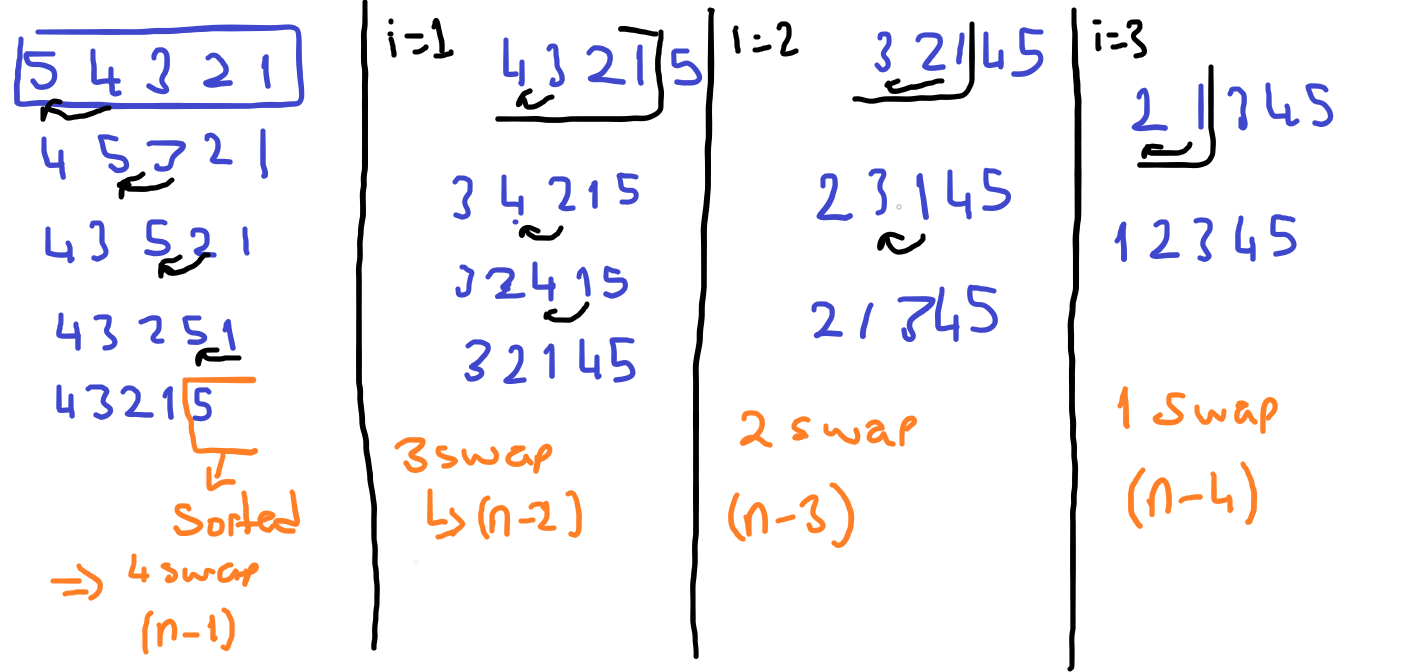 5 4 3 2 1
4 5 3 2 1
4 3 5 2 1
4 3 2 5 1
4 3 2 1 5
Sorted
⇒ 4 swap
(n-1)
i=1
4 3 2 1 5
3 4 2 1 5
3 2 4 1 5
3 2 1 4 5
3 swap
↳ (n-2)
i=2
3 2 1 4 5
2 3 1 4 5
2 1 3 4 5
2 swap
(n-3)
i=3
2 1 3 4 5
1 2 3 4 5
1 swap
(n-4)